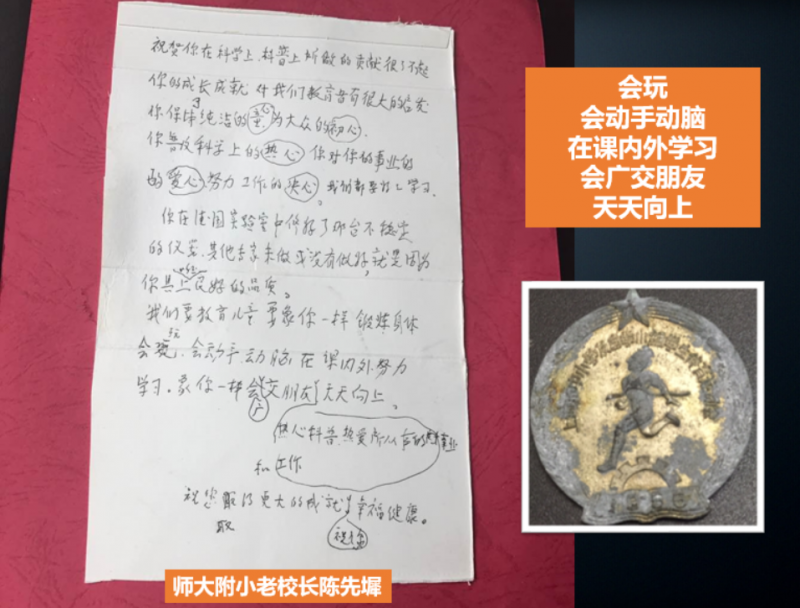 祝贺你在科学上,科普上所做的贡献很了不起
你的成长成就 对我们教育者有很大的启发
你保持了纯洁的童心为大众的初心.
你普及科学上的热心 你对你的事业的
的爱心 努力工作的决心,我们都要好好学习.
你在德国实验室中修好了那台不稳定
的仪器,其他专家未做 或没有做好,就是因为
你具上良好的品质。
我们要教育儿童 要象你一样 锻炼身体
会玩,会动手动脑 在课内外努力
学习.象你一样会广交朋友 天天向上。
热心科普 热爱所从事的事业
和工作
祝您取得更大的成就!幸福健康。
取
祝
师大附小老校长陈先墀
会玩
会动手动脑
在课内外学习
会广交朋友
天天向上
1956